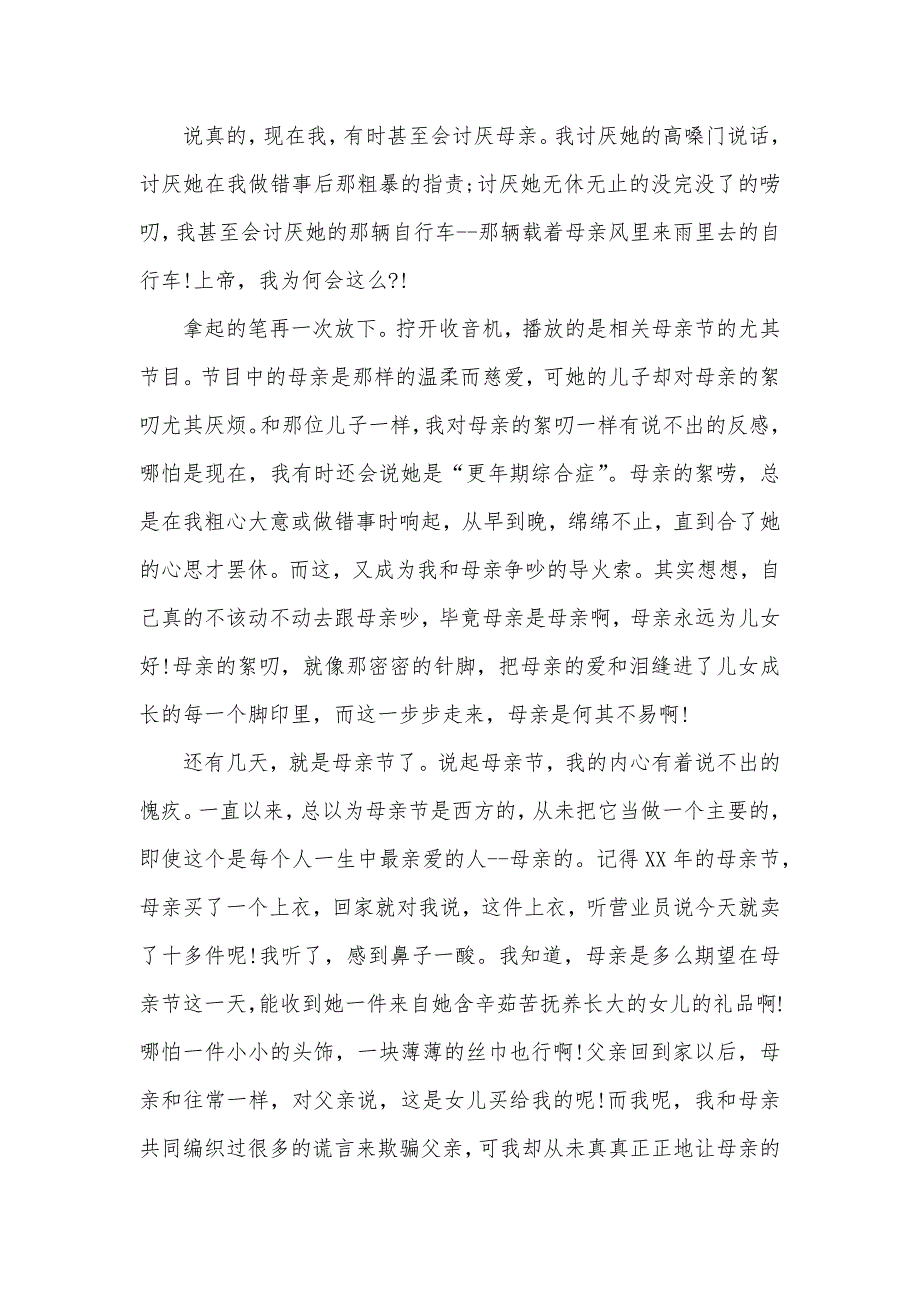 说真的,现在我,有时甚至会讨厌母亲。我讨厌她的高嗓门说话,
讨厌她在我做错事后那粗暴的指责;讨厌她无休无止的没完没了的唠
叨,我甚至会讨厌她的那辆自行车--那辆载着母亲风里来雨里去的自
行车!上帝，我为何会这么?!
拿起的笔再一次放下。拧开收音机，播放的是相关母亲节的尤其
节目。节目中的母亲是那样的温柔而慈爱，可她的儿子却对母亲的絮
叨尤其厌烦。和那位儿子一样,我对母亲的絮叨一样有说不出的反感，
哪怕是现在，我有时还会说她是“更年期综合症”。母亲的絮唠，总
是在我粗心大意或做错事时响起，从早到晚，绵绵不止，直到合了她
的心思才罢休。而这，又成为我和母亲争吵的导火索。其实想想，自
己真的不该动不动去跟母亲吵，毕竟母亲是母亲啊，母亲永远为儿女
好!母亲的絮叨，就像那密密的针脚，把母亲的爱和泪缝进了儿女成
长的每一个脚印里，而这一步步走来，母亲是何其不易啊!
还有几天，就是母亲节了。说起母亲节，我的内心有着说不出的
愧疚。一直以来，总以为母亲节是西方的，从未把它当做一个主要的，
即使这个是每个人一生中最亲爱的人--母亲的。记得 XX 年的母亲节，
母亲买了一个上衣，回家就对我说，这件上衣，听营业员说今天就卖
了十多件呢!我听了，感到鼻子一酸。我知道，母亲是多么期望在母
亲节这一天,能收到她一件来自她含辛茹苦抚养长大的女儿的礼品啊!
哪怕一件小小的头饰，一块薄薄的丝巾也行啊!父亲回到家以后，母
亲和往常一样，对父亲说，这是女儿买给我的呢!而我呢，我和母亲
共同编织过很多的谎言来欺骗父亲，可我却从未真真正正地让母亲的